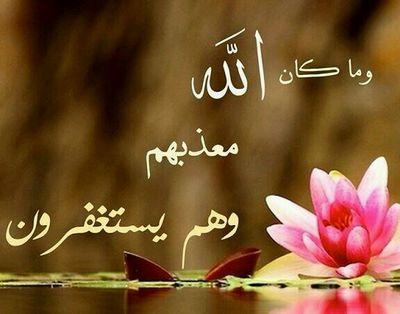 وما كان الله
معذبهم
وهم يستغفرون